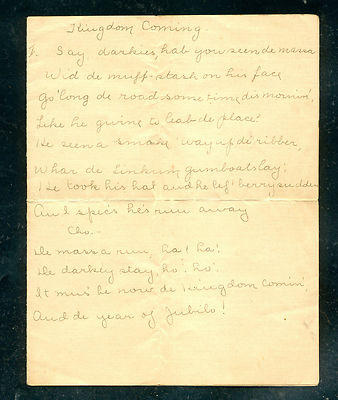 Kingdom Coming.
1. Say darkies, hab you seen de massa
Wid de muff-stash on his face
Go 'long de road some time dis mornin',
Like he gwine to leab de place?
He seen a smoke way up de ribber,
Whar de Linkum gumboats lay;
He took his hat and he lef' berry sudden
An I spec's he's run away
Cho.-
De massa run, ha! ha!
De darkey stay, ho! ho!
It mus' be now de Kingdom Comin',
And de year of Jubilo!